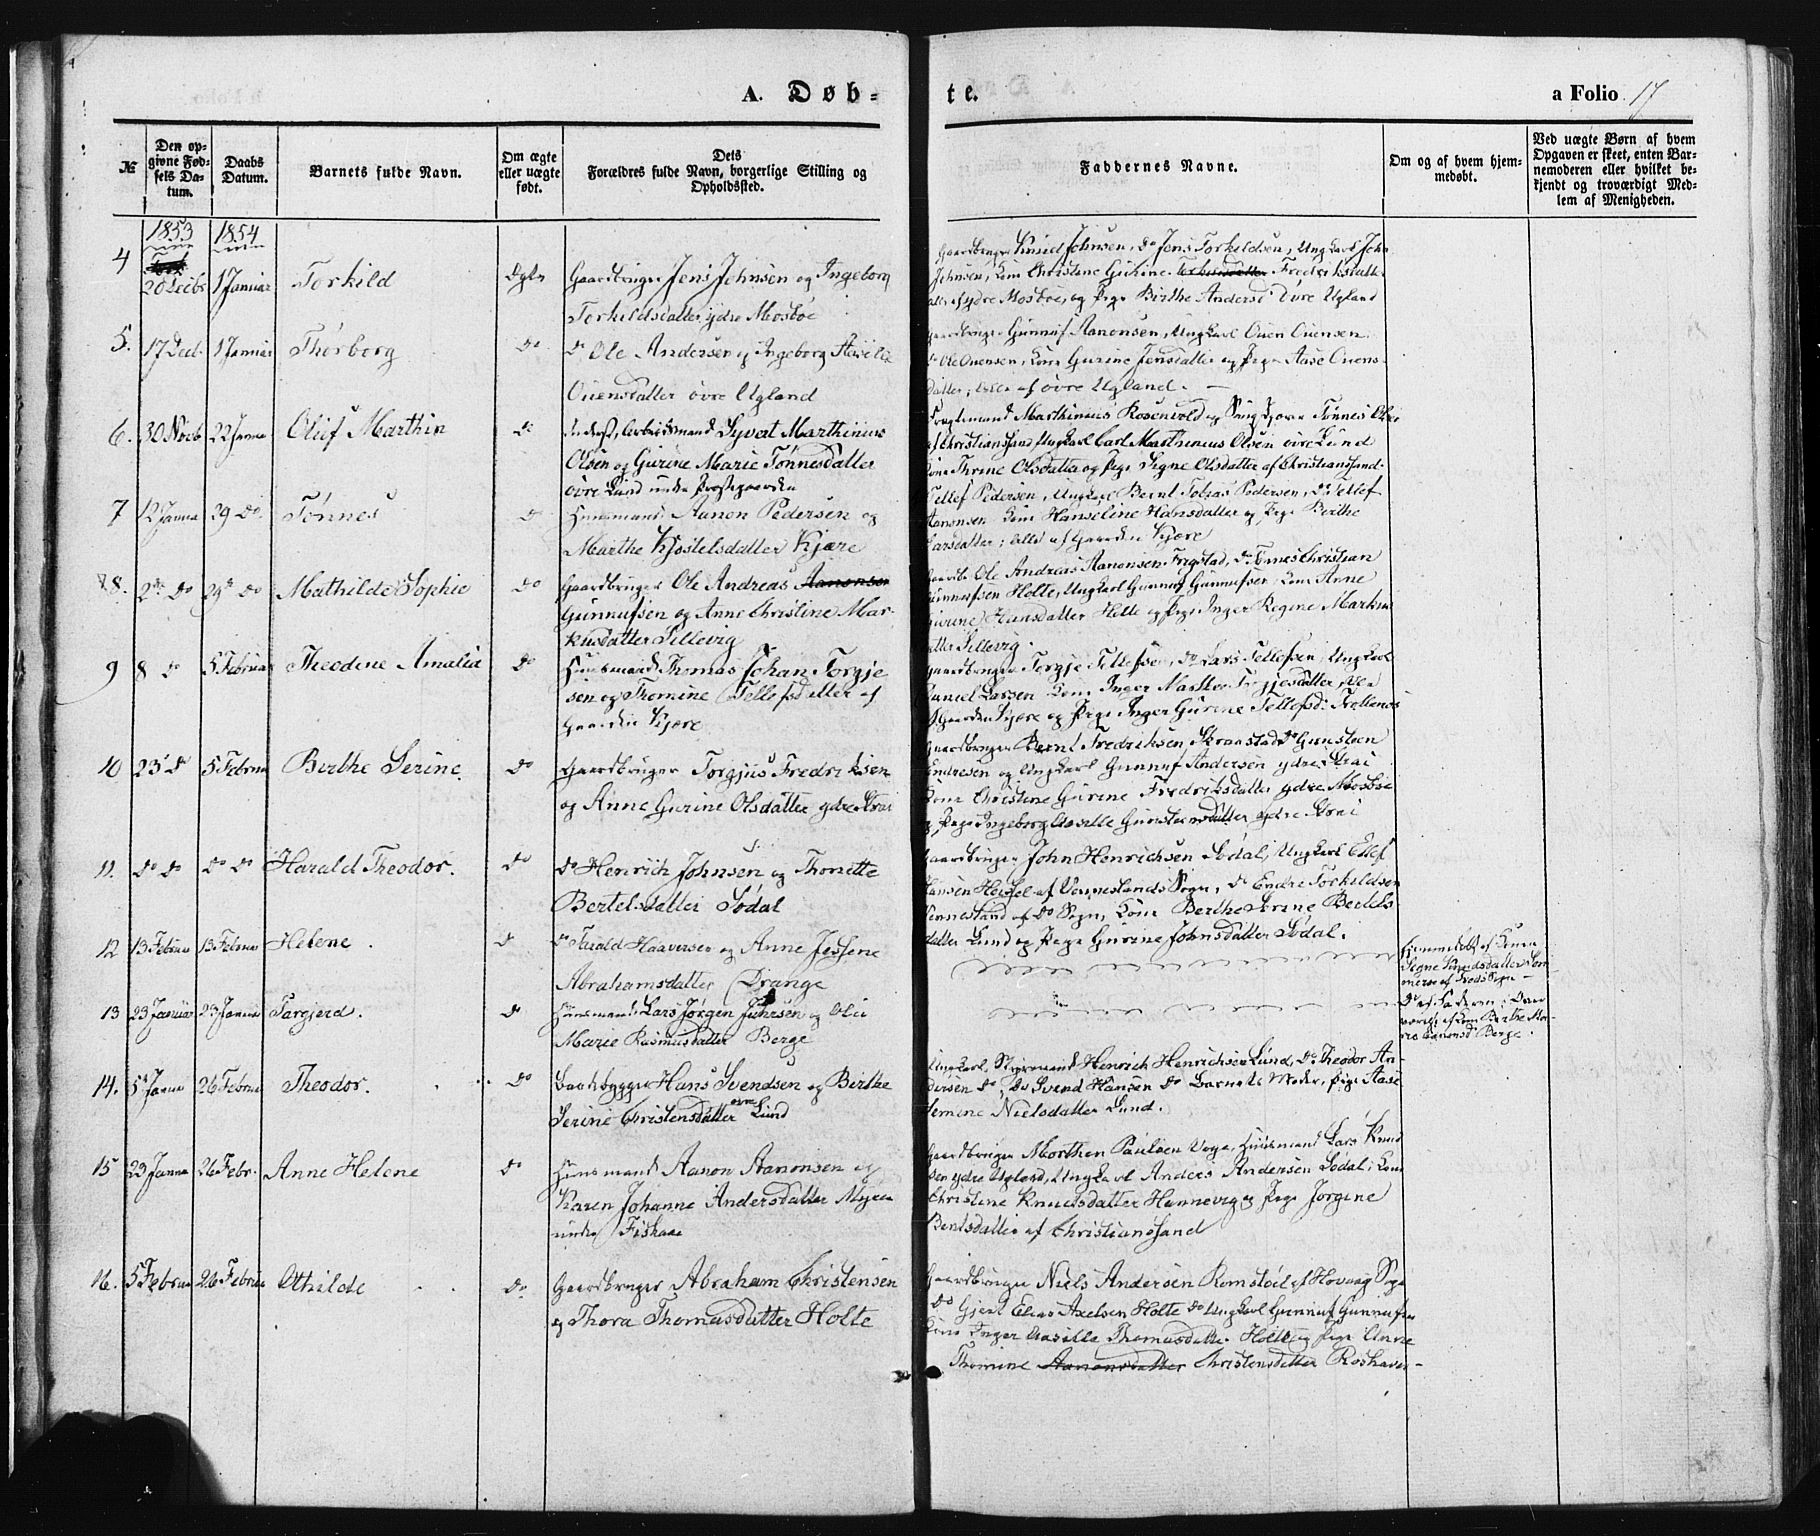 A. Døb-
te.
a Folio 17
№
Den op-
givne Fød-
sels Da-
tum.
Daabs
Datum.
Barnets fulde Navn.
Om ægte
eller uægte
født.
Dets
Forældres fulde Navn, borgerlige Stilling og
Opholdssted.
Faddernes Navne.
Om og af hvem hjem-
medøbt.
Ved uægte Børn af hvem
Opgaven er skeet, enten Bar-
nemoderen eller hvilket be-
kjendt og troværdigt Med-
lem af Menigheden.
1853
1854
4
20 Decbr
1 Januar
Torkild
Ægte
Gaardbruger Jens Johnsen og Ingeborg
Torkildsdatter ydre Mosbøe
Gaardbruger Knud Johnsen, Do Jens Torkildsen, Ungkarl John
Johnsen, Kone Christine Gurine Torkildsdatter Fredriksdatter
alle af ydre Mosbøe, og Pige Birthe Andersd. øvre Ugland
5.
17 Decb.
1 Januar
Thorborg
Do
Do Ole Andersen og Ingeborg Aasille
Ouensdatter øvre Ugland
Gaardbruger Gunnuf Aanonsen, Ungkarl Ouen Ouensen
Do Ole Ouensen, Kone Gurine Jensdatter og Pige Aase Ouens-
datter; alle af øvre Ugland.
6.
30 Novb
22 Janua
Oluf Marthin
Do
Inderst, Arbeidsmand Syvert Marthinius
Olsen og Gurine Marie Tønnesdatter
øvre Lund under Præstegaarden
Marthinius Rosenvold og Tønnes Olsen
af Christianssand, Ungkarl Carl Marthinius Olsen øvre Lund
Kone Thrine Olsdatter og Pige Signe Olsdatter af Christianssand
7
12 Janua
29 Do
Tønnes
Do
Huusmand Aanon Pedersen og
Marthe Kjøstelsdatter Kjære
Tellef Pedersen, Ungkarl Bernt Tobias Pedersen, Do Tellef
Aanonsen Kone Hanseline Hansdatter og Pige Birthe
Larsdatter; alle af Gaarden Kjære
8.
2de Do
29de Do
Mathilde Sophie
Do
Gaardbruger Ole Andreas Aanonsen
Gunnufsen og Anne Christine Mar-
kusdatter Tillevig
Gaardbr Ole Andreas Aanonsen Frigstad, Do Tønnes Christian
Gunnufsen Holte, Ungkarl Gunnuf Gunnufsen, Kone Anne
Gurine Hansdatter Holte og Pige Inger Regine Markus
datter Tillevig.
9
8 Do
5 Februar
Theodine Amalia
Do
Huusmand Thomas Johan Torgje
sen og Thomine Tellefsdatter af
Gaarden Kjære
Gaardbruger Torgje Tellefsen, Do Lars Tellefsen, Ungkarl
Daniel Larsen Kone Inger Marthe Torgjesdatter alle
af Gaarden Kjære og Pige Inger Gurine Tellefsd.
10
23 Do
5 Februa
Birthe Serine
Do
Gaardbruger Torgjus Fredriksen
og Anne Gurine Olsdatter ydre Strai
Gaardbruger Bernt Fredriksen, Skraastad Do Gunsteen
Andresen og Ungkarl Gunnuf Andersen ydre Strai
Kone Christine Gurine Fredriksdatter ydre Mosbøe
og Pige Ingeborg Aasille Gunsteensdatter ydre Strai
11.
Do Do
Do Do
Harald Theodor.
Do
Do Henrich Johnsen og Thonette
Bertelsdatter Sødal
Gaardbruger John Henrichsen Sødal, Ungkarl Ellef
Hansen af Vennesland Sogn, Do Endre Torkildsen
Vennesland af Do Sogn, Kone Berthe Serine Bertels
datter Lund og Pige Gurine Johnsdatter Sødal.
12
13 Februa
13 Februa
Helene.
Do
Do Tarald Haaversen og Anne Jessine
Abrahamsdatter Drange
Hjemmedøbt af Konen
Signe Knudsdatter
13
23 Januar
23 Januar
Targjerd.
Do
Huusmand Lars Jørgen Juhrsen og Oliv
Marie Rasmusdatter Berge
Do af Faderen i Over
værelse af Kone Berthe Ma-
rie Berge.
14.
5 Janua
26 Februa
Theodor.
Do
Baadsbygger Hans Svendsen og Birthe
Serine Christensdatter øvre Lund
Ungkarl, Styrmand Henrich Henrichsen Lund, Do Theodor An-
dersen Do, Do Svend Hansen Do Barnets Moder, Pige Aase
Nielsdatter Lund.
15
23 Janua
26 Febr.
Anne Helene
Do
Huusmand Aanon Aanonsen og
Karen Johanne Andersdatter Myren
under Fiskaae
Gaardbruger Morthen Paulsen Voge, Huusmand Lars Knud
sen ydre Ugland, Ungkarl Anders Andersen Sødal; Kone
Christine Knudsdatter Hannevig og Pige Jorgine
Berntsdatter af Christianssand
16.
5 Februa
26 Februa
Othilde
Do
Gaardbruger Abraham Christensen
og Thora Thomasdatter Holte
Gaardbruger Niels Andersen Romstøel af Høvaag Sogn
Do Gjert Elias Axelsen Holte Do Ungkarl Gunnuf Gunnufsen
Kone Inger Aasille Thomasdatter Holte og Pige Anne
Thomine Aanonsdatter Christensdatter Roshaven